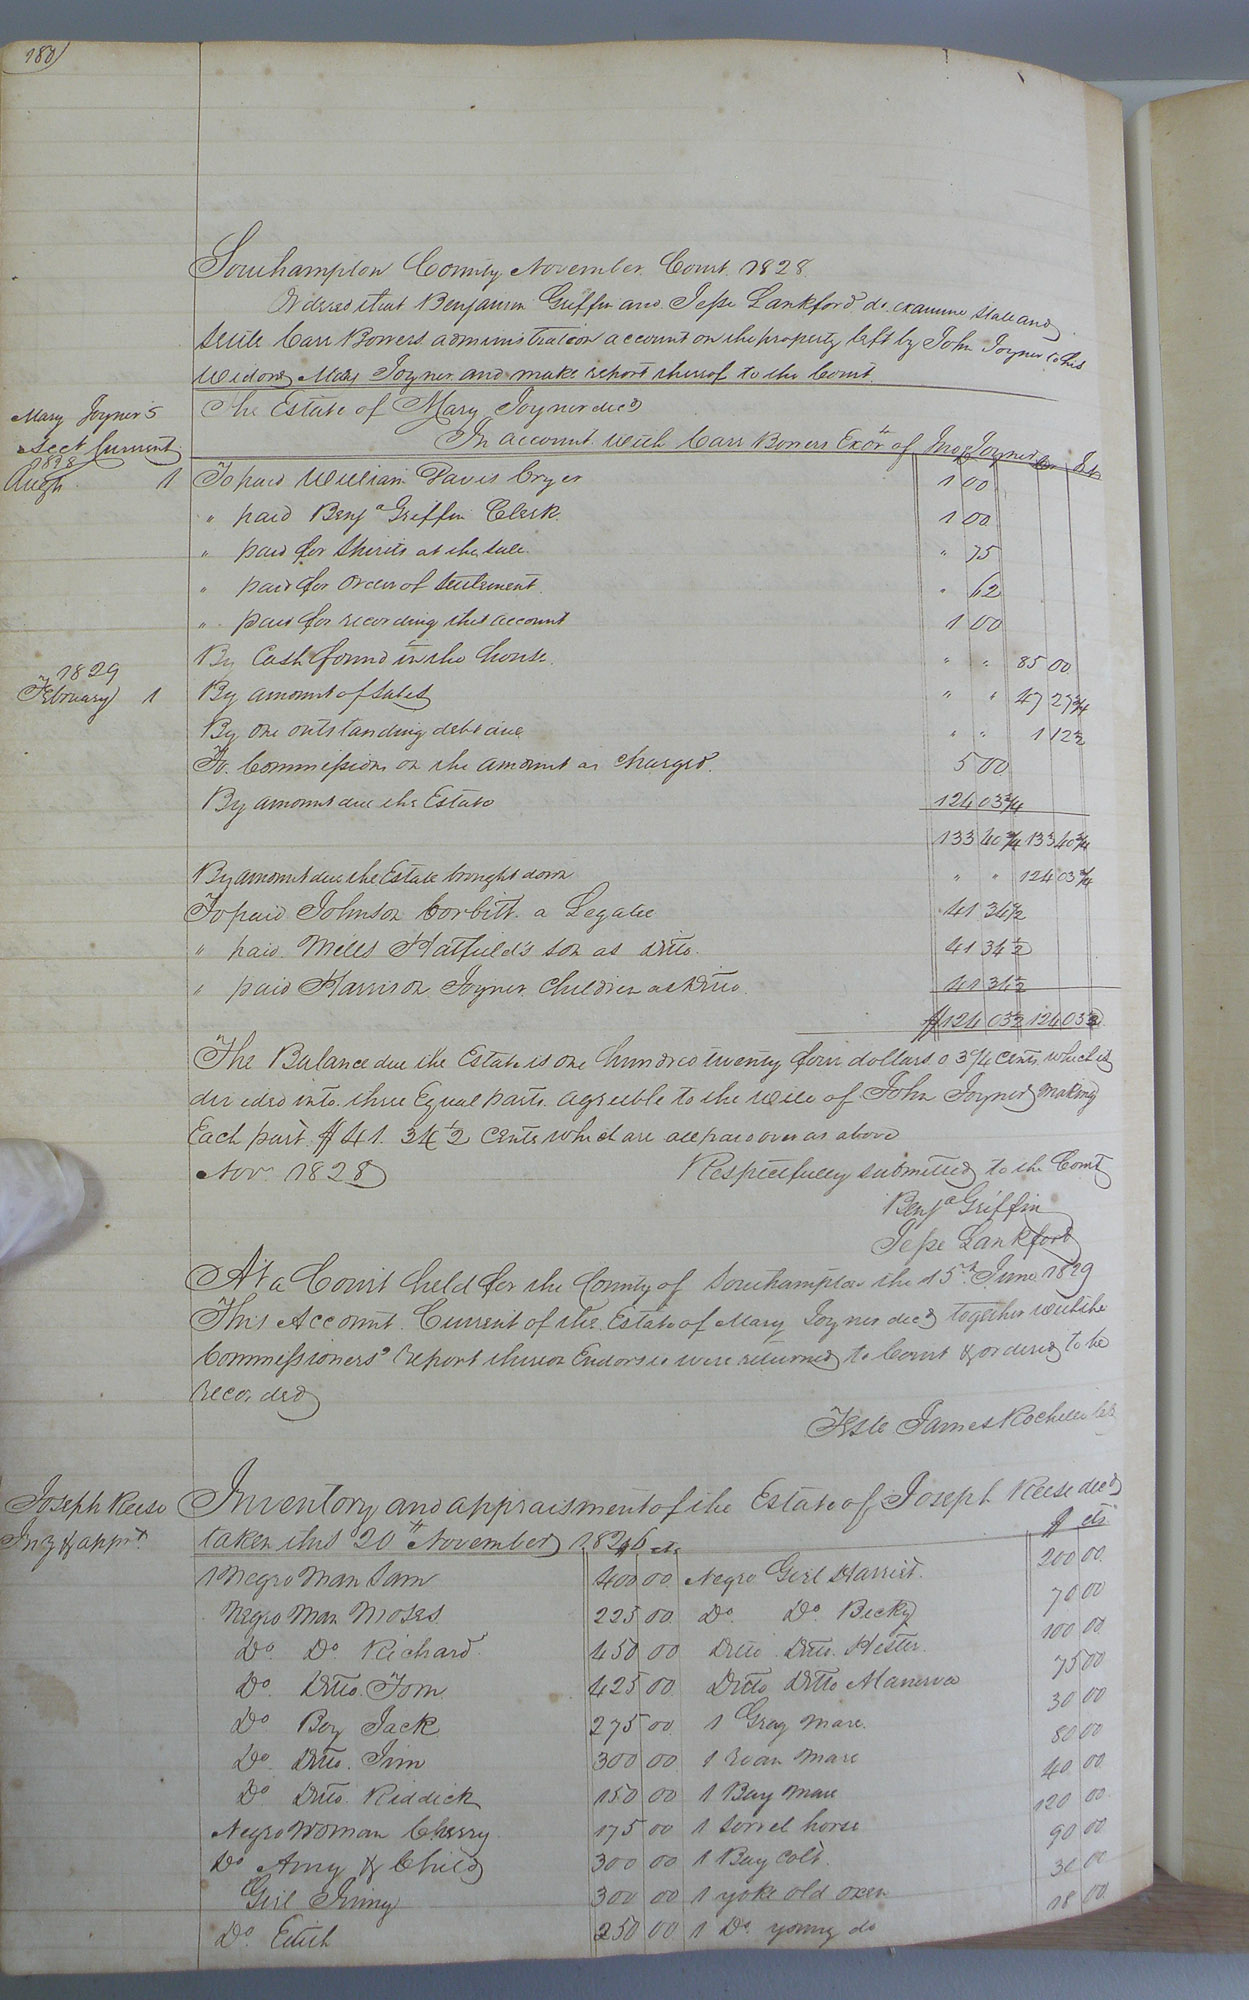 180
Southampton County November Court 1828
Ordered that Benjamin Griffin and Jesse Lankford do examine state and
settle Carr Bowers administration account on the property left by John Joyner to his
Widow Mary Joyner and make report thereof to the Court
Mary Joyner's
Acct Current
The Estate of Mary Joyner decd
In account with Carr Bowers Exor of Jno Joyner Dr Cr
1828
Augt 1 To paid William Davis Cryer 1 00
" paid Benja Griffin Clerk 1 00
" paid for Spirits at the sale " 75
" paid for order of Settlement " 62
" paid for recording this account 1 00
By Cash found in the house " " 85 00
1829
February 1 By amount of Sales " " 47 27 3/4
By one outstanding debt due " " 1 12 1/2
To Commissions on the amount as charged 5 00
By amount due the Estate 124 03 3/4
133 40 3/4 133 40 3/4
By amount due the Estate brought down " " 124 03 3/4
To paid Johnson Corbitt a Legatee 41 34 1/2
" paid Mills Hatfield's son as Ditto 41 34 1/2
" paid Harrison Joyner Children as Ditto 41 34 1/2
$124 03 1/2 124 03
The Balance due the Estate is one hundred twenty four dollars 0 3 3/4 Cents which is
divided into three Equal parts agreeble to the will of John Joyner making
Each part $41. 34 1/2 Cents which are all paid over as above
Nov. 1828 Respectfully submitted to the Court
Benja Griffin
Jesse Lankford
At a Court held for the County of Southampton the 15th June 1829
This Account Current of the Estate of Mary Joyner decd together with the
Commissioners' report thereon Endorsed were returned to Court & ordered to be
recorded
Teste James Rochelle
Joseph Reese
Inv & appt
Inventory and appraisment of the Estate of Joseph Reese decd
taken this 20th November 1826
$ cts $ cts
1 Negro Man Sam 400 00 Negro Girl Harriet 200 00
Negro Man Moses 225 00 Do Do Becky 70 00
Do Do Richard 450 00 Ditto Ditto Hester 100 00
Do Ditto Tom 425 00 Ditto Ditto Manerva 75 00
Do Boy Jack 275 00 1 Gray Mare 30 00
Do Ditto Jim 300 00 1 roan Mare 80 00
Do Ditto Riddick 150 00 1 Bay Mare 40 00
Negro Woman Cherry 175 00 1 Sorrel horse 120 00
Do Amy & Child 300 00 1 Bay Colt 90 00
Girl Jinny 300 00 1 yoke old oxen 30 00
Do Edith 250 00 1 Do young do 18 00